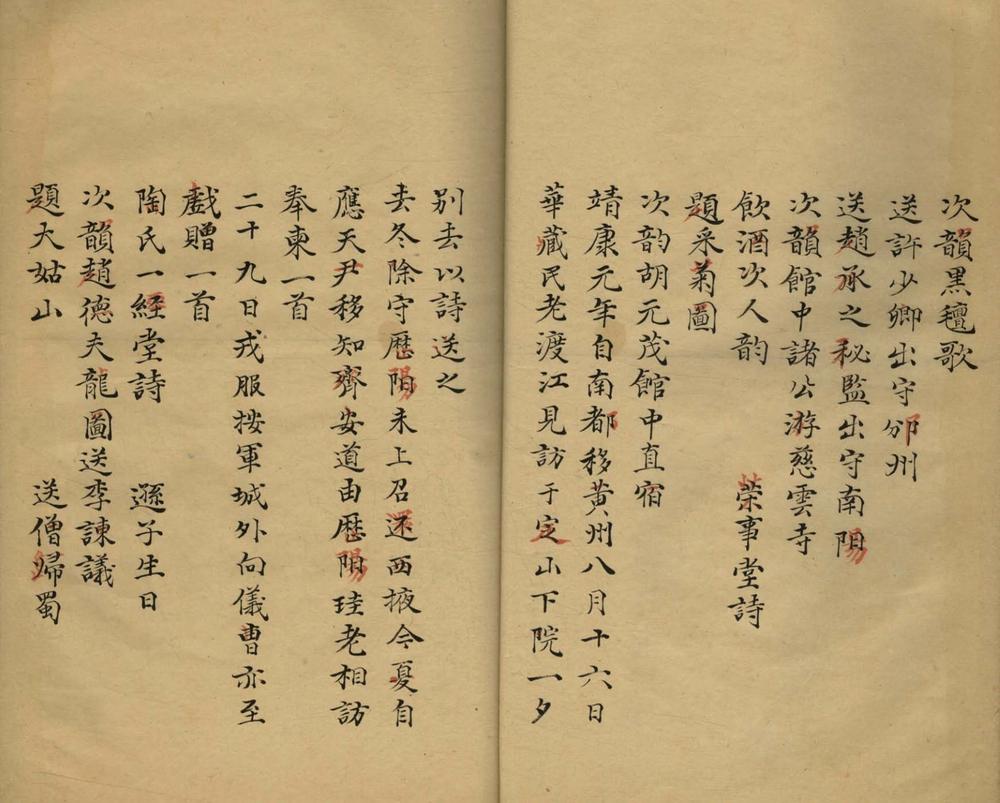 次韻黑氊歌
送許少卿出守邠州
送趙承之秘監出守南阳
次韻館中諸公游慈雲寺
飲酒次人韵 荣事堂詩
題采菊圖
次韵胡元茂館中直宿
靖康元年自南都移黃州八月十六日
華藏民老渡江見訪于定山下院一夕
别去以詩送之
去冬除守歷阳未上召还西掖今夏自
應天尹移知齊安道由歷阳珪老相訪
奉柬一首
二十九日戎服按軍城外向儀曹亦至
戲贈一首
陶氏一經堂詩 遜子生日
次韻趙德夫龍圖送李諫議
題大姑山 送僧歸蜀